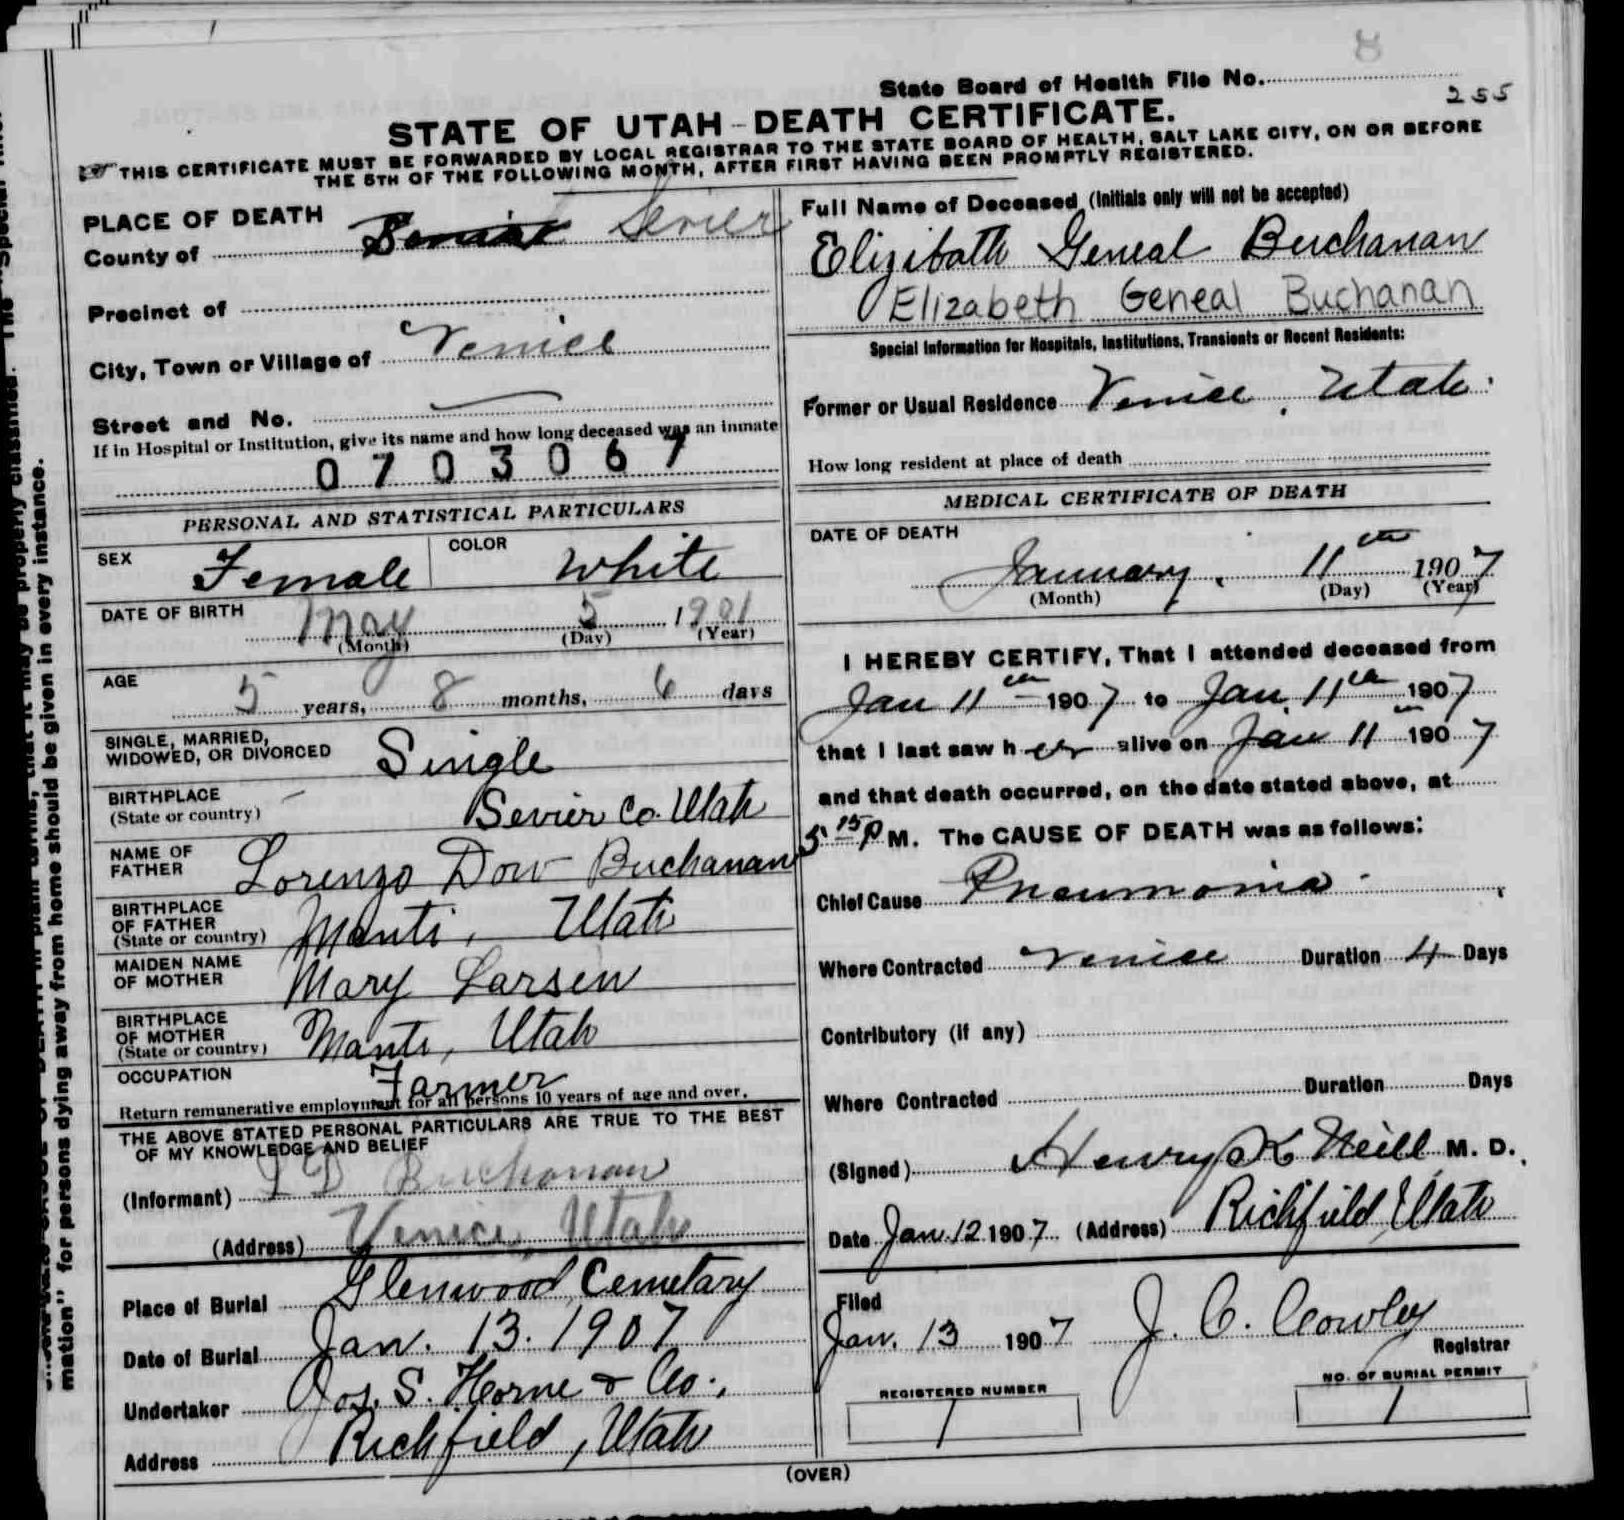 State Board of Health File No.
255
STATE OF UTAH - DEATH CERTIFICATE.
THIS CERTIFICATE MUST BE FORWARDED BY LOCAL REGISTRAR TO THE STATE BOARD OF HEALTH, SALT LAKE CITY, ON OR BEFORE
THE 5TH OF THE FOLLOWING MONTH, AFTER FIRST HAVING BEEN PROMPTLY REGISTERED.
PLACE OF DEATH
County of Sevier
Precinct of
City, Town or Village of Venice
Street and No.
If in Hospital or Institution, give its name and how long deceased was an inmate
0703067
PERSONAL AND STATISTICAL PARTICULARS
SEX Female COLOR White
DATE OF BIRTH May 5 1901
(Month) (Day) (Year)
AGE
5 years, 8 months, 6 days
SINGLE, MARRIED,
WIDOWED, OR DIVORCED Single
BIRTHPLACE
(State or country) Sevier Co. Utah
NAME OF
FATHER Lorenzo Dow Buchanan
BIRTHPLACE
OF FATHER
(State or country) Manti, Utah
MAIDEN NAME
OF MOTHER Mary Larsen
BIRTHPLACE
OF MOTHER
(State or country) Manti, Utah
OCCUPATION Farmer
Return remunerative employment for all persons 10 years of age and over.
THE ABOVE STATED PERSONAL PARTICULARS ARE TRUE TO THE BEST
OF MY KNOWLEDGE AND BELIEF
(Informant) L D Buchanan
(Address) Venice, Utah
Place of Burial Glenwood Cemetary
Date of Burial Jan. 13. 1907
Undertaker Jos. S. Horne & Co.,
Address Richfield, Utah
Full Name of Deceased (Initials only will not be accepted)
Elizibath Geneal Buchanan
Elizabeth Geneal Buchanan
Special Information for Hospitals, Institutions, Transients or Recent Residents:
Former or Usual Residence Venice, Utah.
How long resident at place of death
MEDICAL CERTIFICATE OF DEATH
DATE OF DEATH
January, 11th 1907
(Month) (Day) (Year)
I HEREBY CERTIFY, That I attended deceased from
Jan 11th 1907 to Jan. 11th 1907
that I last saw her alive on Jan 11 1907
and that death occurred, on the date stated above, at
5 15 P M. The CAUSE OF DEATH was as follows:
Chief Cause Pneumonia.
Where Contracted Venice Duration 4 Days
Contributory (if any)
Where Contracted Duration Days
(Signed) Henry K Neill M. D.
Date Jan. 12 1907 (Address) Richfield, Utah
Filed
Jan. 13 1907 J. C. Cowley
Registrar
REGISTERED NUMBER
1
NO. OF BURIAL PERMIT
1
(OVER)
mation" for persons dying away from home should be given in every instance.